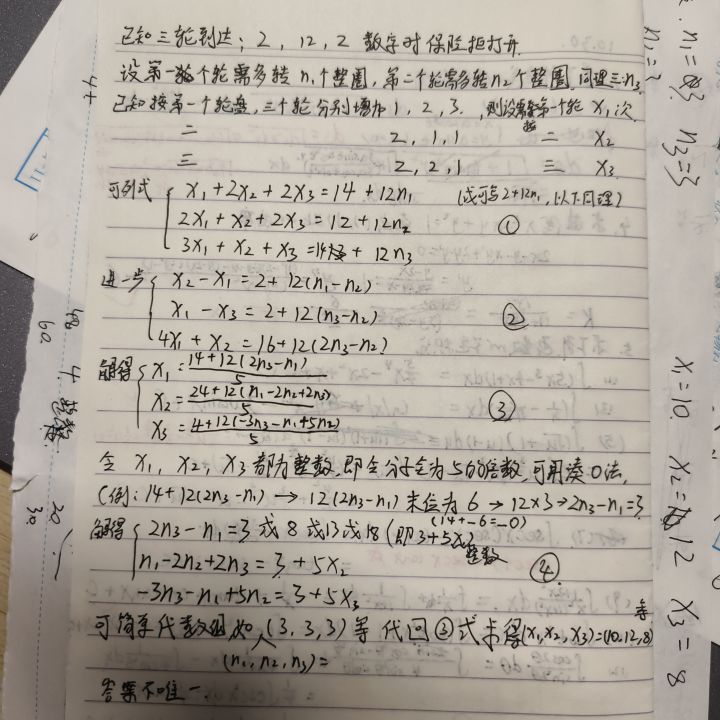 已知三轮到达：2，12，2 数字时保险柜打开.
设第一个轮需多转 n₁个整圈，第二个轮需多转n₂个整圈 同理三:n₃
已知按第一个轮盘，三个轮分别增加1，2，3. 则设需按第一个轮 x₁次
二 2，1，1 二 x₂
三 2，2，1 三 x₃
可列式 { x₁+2x₂+2x₃=14+12n₁ (或可写2+12n₁，以下同理)
2x₁+x₂+2x₃=12+12n₂ ①
3x₁+x₂+x₃=14+12n₃
进一步 { x₂-x₁=2+12(n₁-n₂)
x₁-x₃=2+12(n₃-n₂) ②
4x₁+x₂=16+12(2n₃-n₂)
解得 { x₁=14+12(2n₃-n₁)/5
x₂=24+12(n₁-2n₂+2n₃)/5 ③
x₃=4+12(-3n₃-n₁+5n₂)/5
令 x₁，x₂，x₃ 都为整数，即令分子全为5的倍数，可用凑0法，
(例：14+12(2n₃-n₁) → 12(2n₃-n₁) 末位为 6 → 12×3 → 2n₃-n₁=3
(14+-6=-0)
解得 { 2n₃-n₁=3 或 8 或13或18 (即3+5x₁)
整数
n₁-2n₂+2n₃=3+5x₂ ④
-3n₃-n₁+5n₂=3+5x₃
可简单代数 如(3,3,3)等 代回③式求得(x₁,x₂,x₃)=(10,12,8)等
(n₁,n₂,n₃)=
答案不唯一
n₁=3
n₃=3
x₁=10 x₂=12 x₃=8